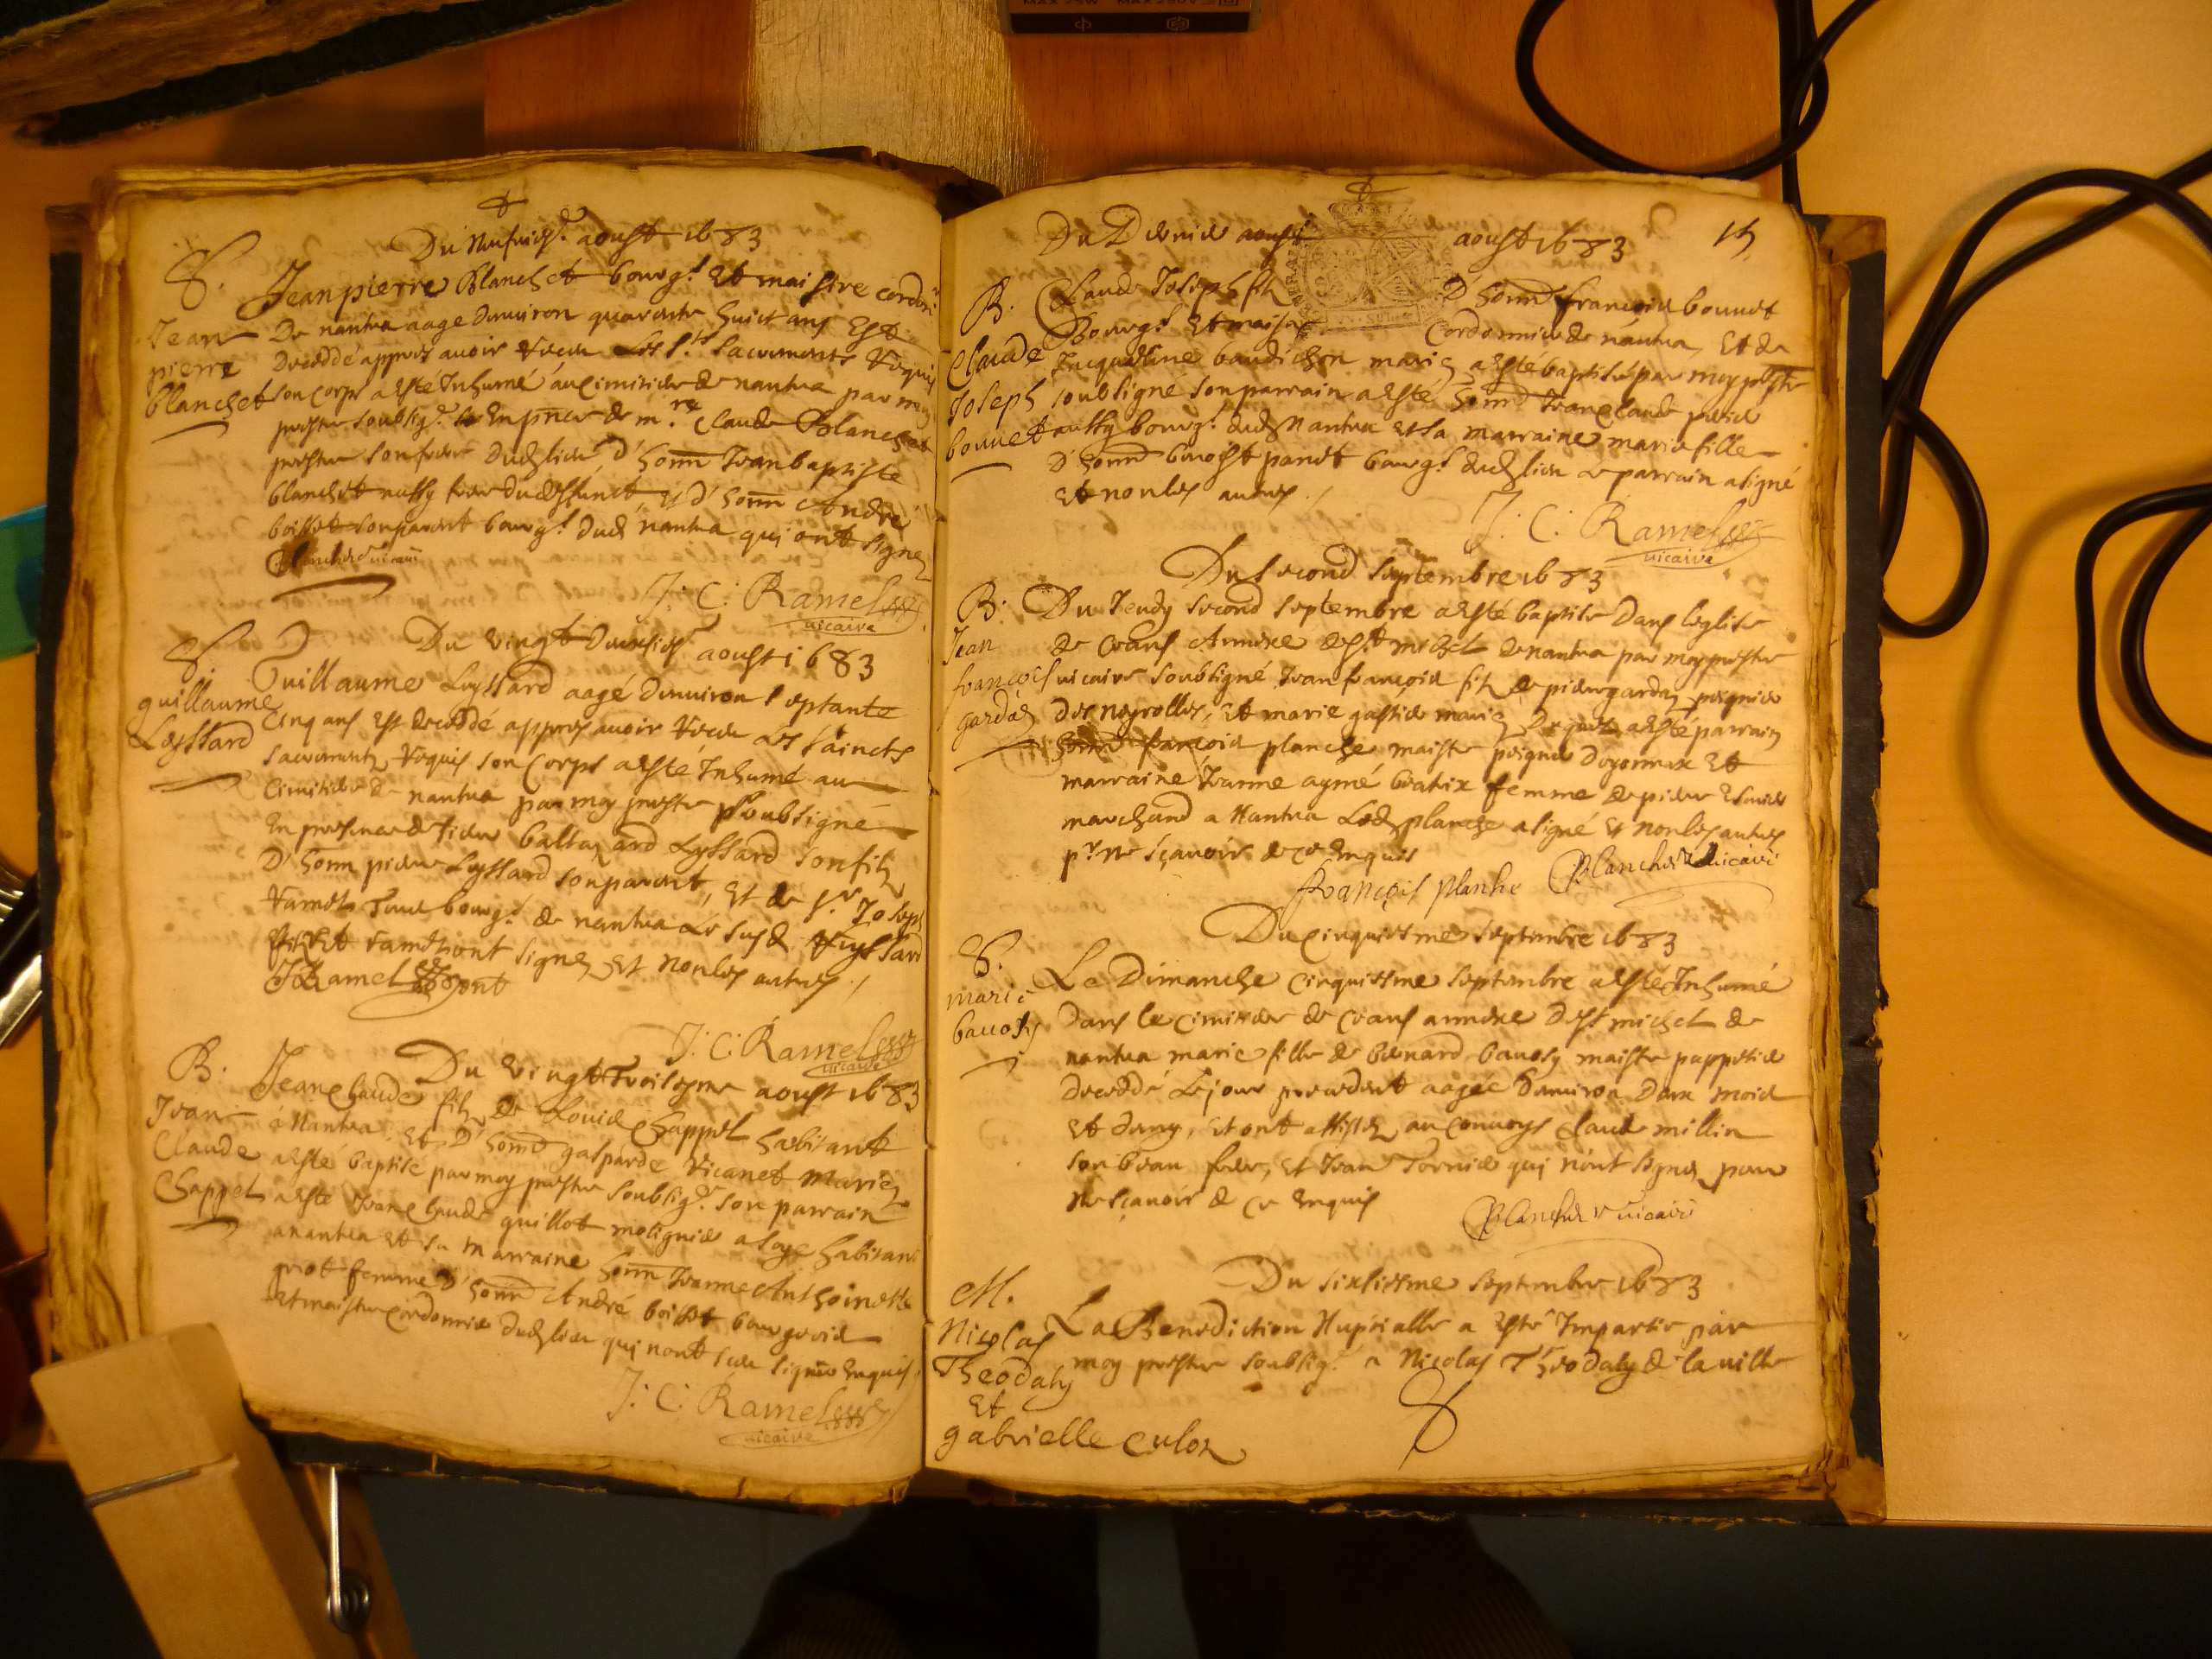 Du Neufvie.e aoust 1683
S.
Jean
pierre
blanchet
Jean pierre Blanchet bourg.s Et maistre cordon.r
De nantua aage denviron quarante huict ans Est
Decedé appres avoir Receu Les s.ts Sacrements Requis
son Corps a esté Inhumé au Cimitiere de nantua par moy
prestre soubsig.é En pñce de m.re Claude Blanchet
prestre son frere dud lieu d'honn Jean baptiste
blanchet aussy frere du deffunct, et d'honn André
boisset son parent bourg.s dud nantua qui ont signe
Blanchet vicaire
J: C: Ramel
vicaire
Du vingt deuxsie.e aoust 1683
S.
guillaume
Leyssard
Guillaume Leyssard aagé denviron septante
Cinq ans est decedé appres avoir Receu Les saincts
sacrements Requis son Corps a esté Inhumé au
Cimitiere de nantua par moy prestre soubsigné
En presence de sieur baltazard Leyssard son filz
D'honn pierre Leyssard son parent, et de s.r Joseph
bourg.s de nantua Le susd Leyssard
Et ont signe et non les autres ./
J: C: Ramel
vicaire
Du vingt Troisiesme aoust 1683
B.
Jean
Claude
Chappel
Jean Claude filz de Louis Chappel habitant
a Nantua Et D'honn gasparde Vicanet Mariez
a esté baptisé par moy prestre soubsig.é son parrain
a esté Jean Claude guillot habitant
a nantua et sa marraine honn Jeanne Anthoinette
femme D'honn André boisset bourgeois
Et maistre Cordonnier dud lieu qui n'ont sceu signer Enquis
J: C: Ramel
vicaire
15
Du Dernier aoust aoust 1683
B.
Claude
Joseph
bonnet
Claude Joseph filz D'honn François bonnet
Bourg.s Et maistre Cordonnier de nantua, Et de
Jacqueline baudichon mariez a esté baptisé par moy prestre
soubsigné son parrain a esté honn Jean Claude
aussy bourg.s dud Nantua et sa marraine marie fille
D'honn benoist bourg.s dud lieu Le parrain a signé
Et non les autres ./
J: C: Ramel
vicaire
Du second septembre 1683
B.
Jean
françois
gardaz
Du Jeudy second septembre a esté baptisé Dans leglise
de annexe de s.t michel de nantua par moy prestre
vicaire soubsigné Jean françois filz de pierre gardaz peignier
des neyrolles, et marie mariez a esté parrain
honn françois planche maistre peigne doyonnax Et
marraine Jeanne aymé beatrix femme de pierre
marchand a Nantua Led planche a signé et non les autres
p.r ne sçavoir de ce Enquis
françois planhe Blanchet vicaire
Du cinquiesme septembre 1683
S.
marie
Le Dimanche cinquiesme septembre a esté Inhumé
Dans le Cimitiere de annexe de s.t michel de
nantua marie fille de bernard maistre pappetier
Decedé Le jour precedent aagée denviron deux mois
Et demy, et ont assistez au Convoys Claude millin
son beau frere, et Jean Tornier qui n'ont signez pour
ne sçavoir de ce Enquis
Blanchet vicaire
Du sixiesme septembre 1683
M.
Nicolas
Theodaly
Et
gabrielle culoz
La Benediction Nuptialle a esté Impartie par
moy prestre soubsig.é a Nicolas Theodaly de la ville